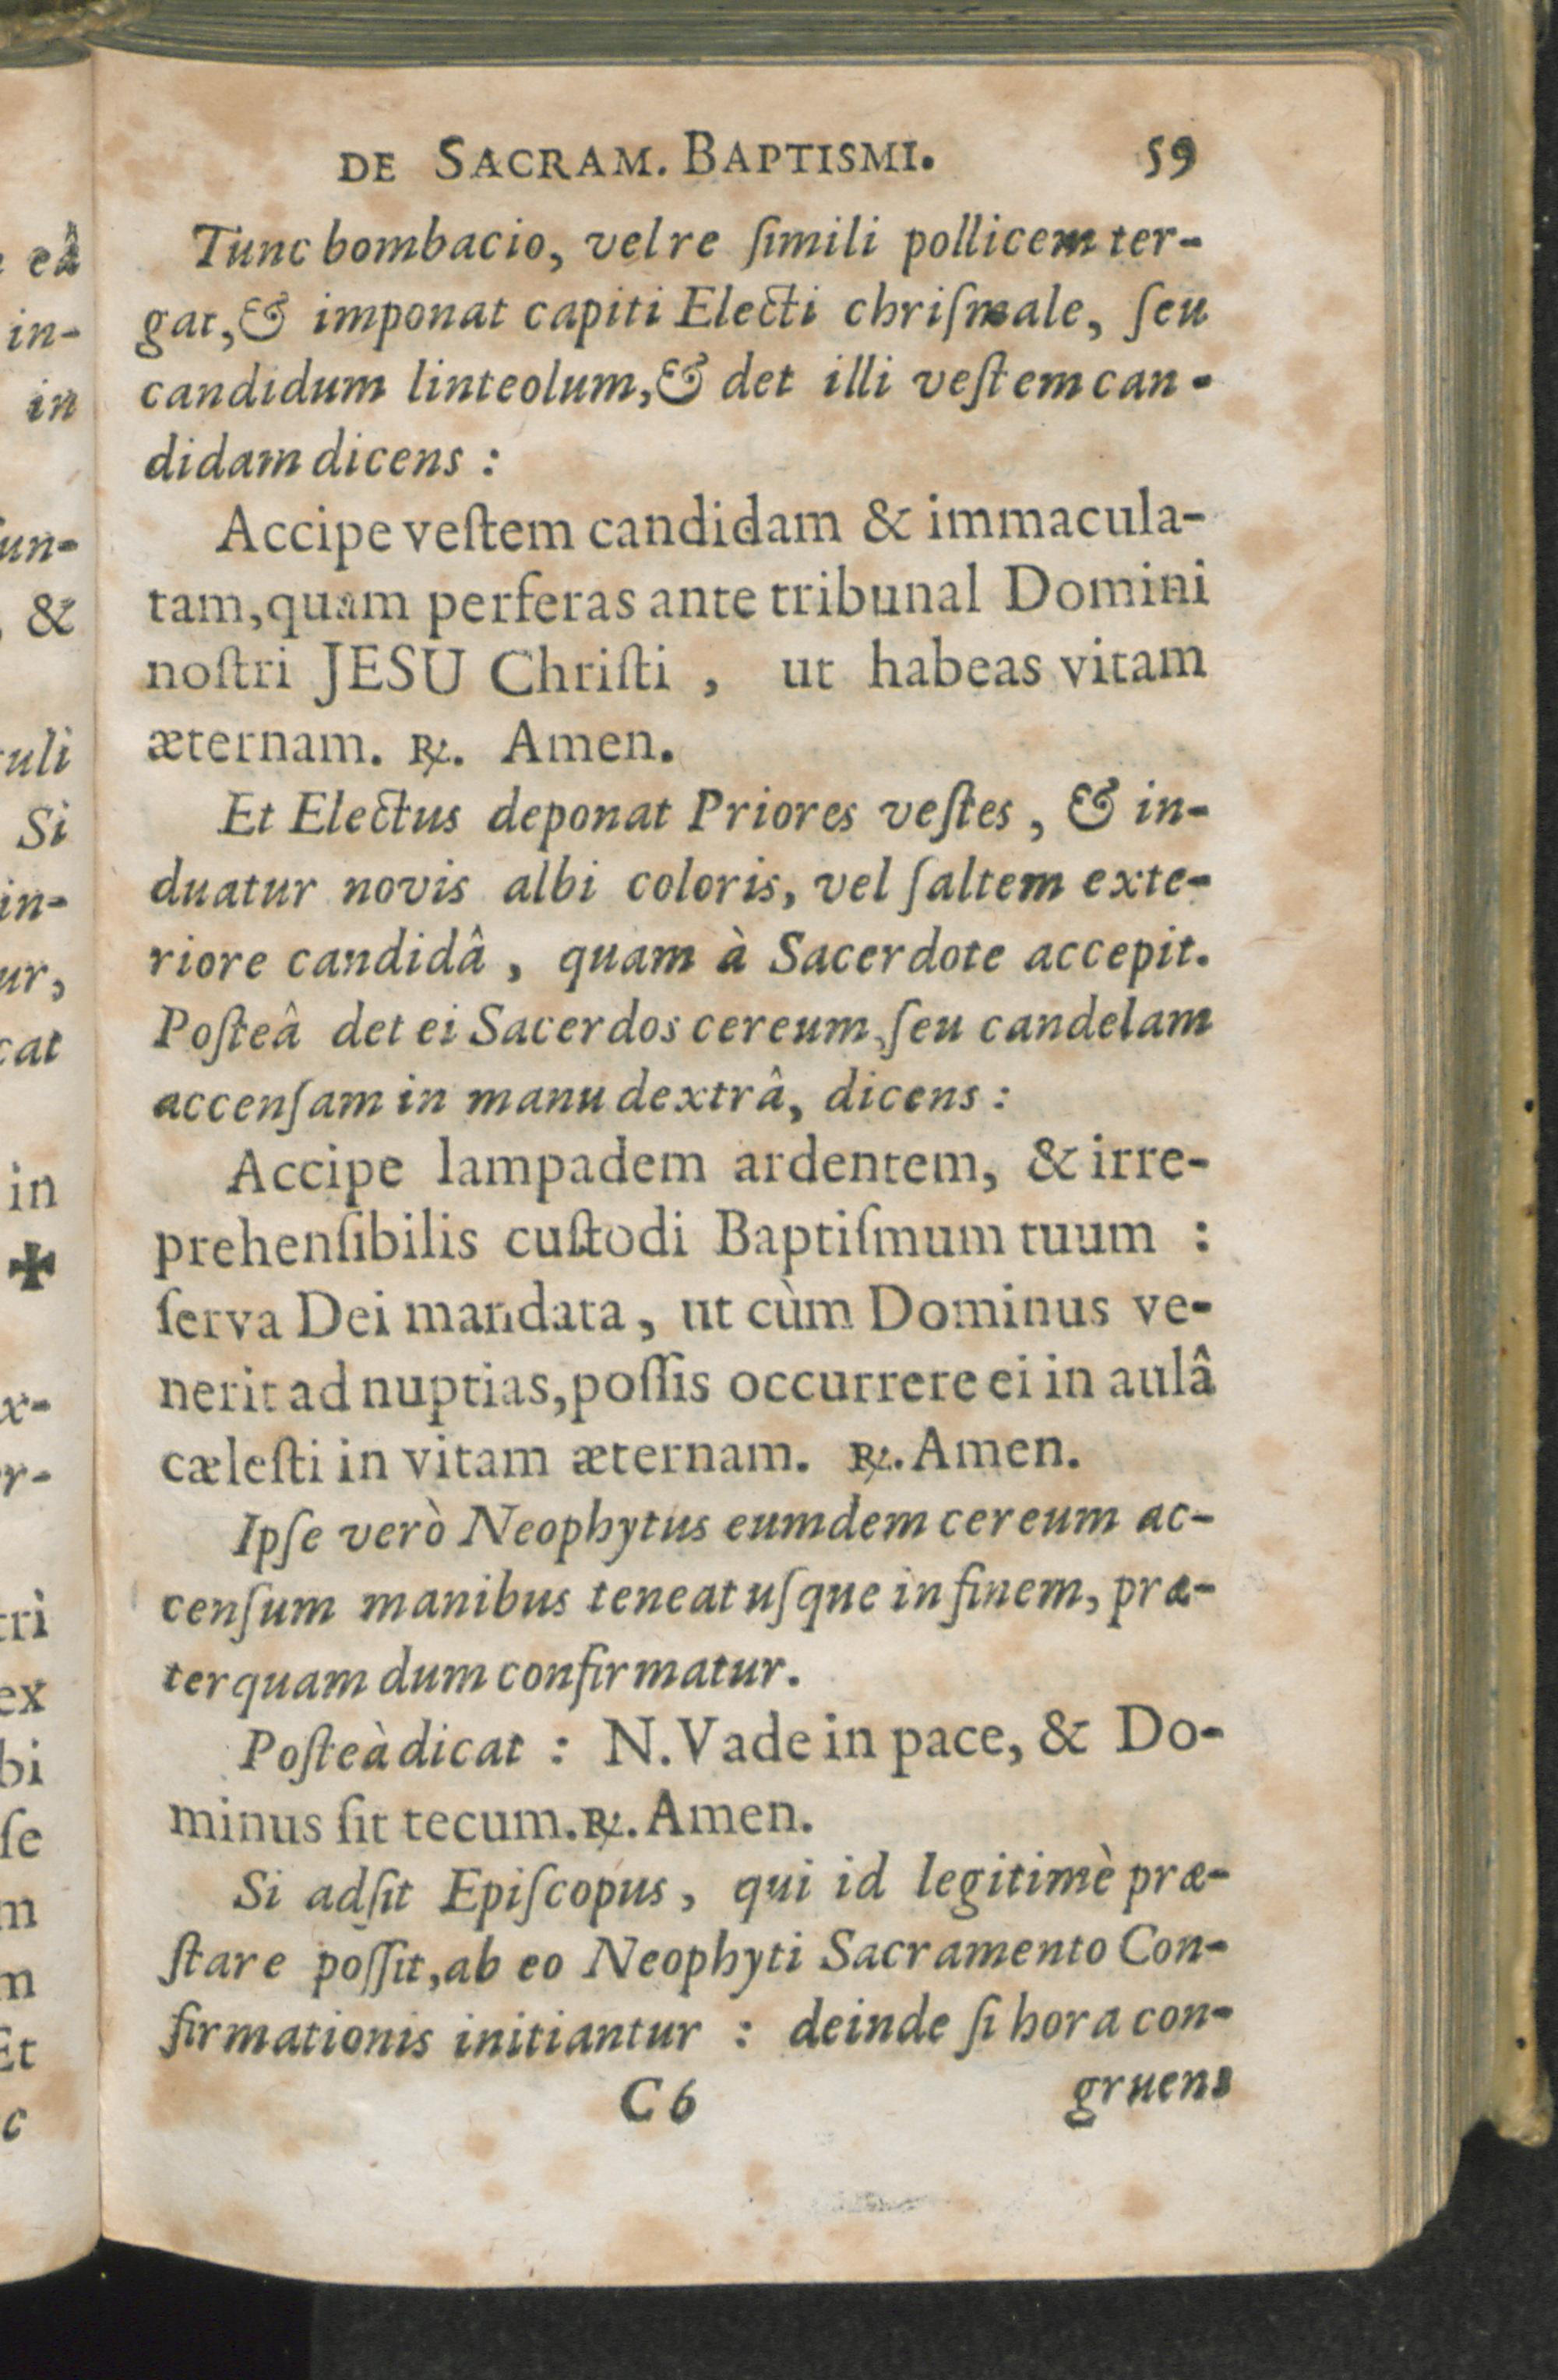 DE SACRAM. BAPTISMI. 59
Tunc bombacio, vel re ſimili pollicem ter-
gat, & imponat capiti Electi chriſmale, ſeu
candidum linteolum, & det illi veſtem can-
didam dicens :
Accipe veſtem candidam & immacula-
tam, quam perferas ante tribunal Domini
noſtri JESU Chriſti , ut habeas vitam
æternam. ℞. Amen.
Et Electus deponat Priores veſtes , & in-
duatur novis albi coloris, vel ſaltem exte-
riore candidâ , quam à Sacerdote accepit.
Poſteâ det ei Sacerdos cereum, ſeu candelam
accenſam in manu dextrâ, dicens :
Accipe lampadem ardentem, & irre-
prehenſibilis cuſtodi Baptiſmum tuum :
ſerva Dei mandata , ut cùm Dominus ve-
nerit ad nuptias, poſſis occurrere ei in aulâ
cæleſti in vitam æternam. ℞. Amen.
Ipſe verò Neophytus eumdem cereum ac-
cenſum manibus teneat uſque in finem, præ-
terquam dum confirmatur.
Poſteà dicat : N. Vade in pace, & Do-
minus ſit tecum. ℞. Amen.
Si adſit Epiſcopus , qui id legitimè præ-
ſtare poſſit, ab eo Neophyti Sacramento Con-
firmationis initiantur : deinde ſi hora con-
C6 gruens
eâ
in-
in
&
uli
Si
in-
ur,
cat
in
✠
ex
bi
ſe
Et